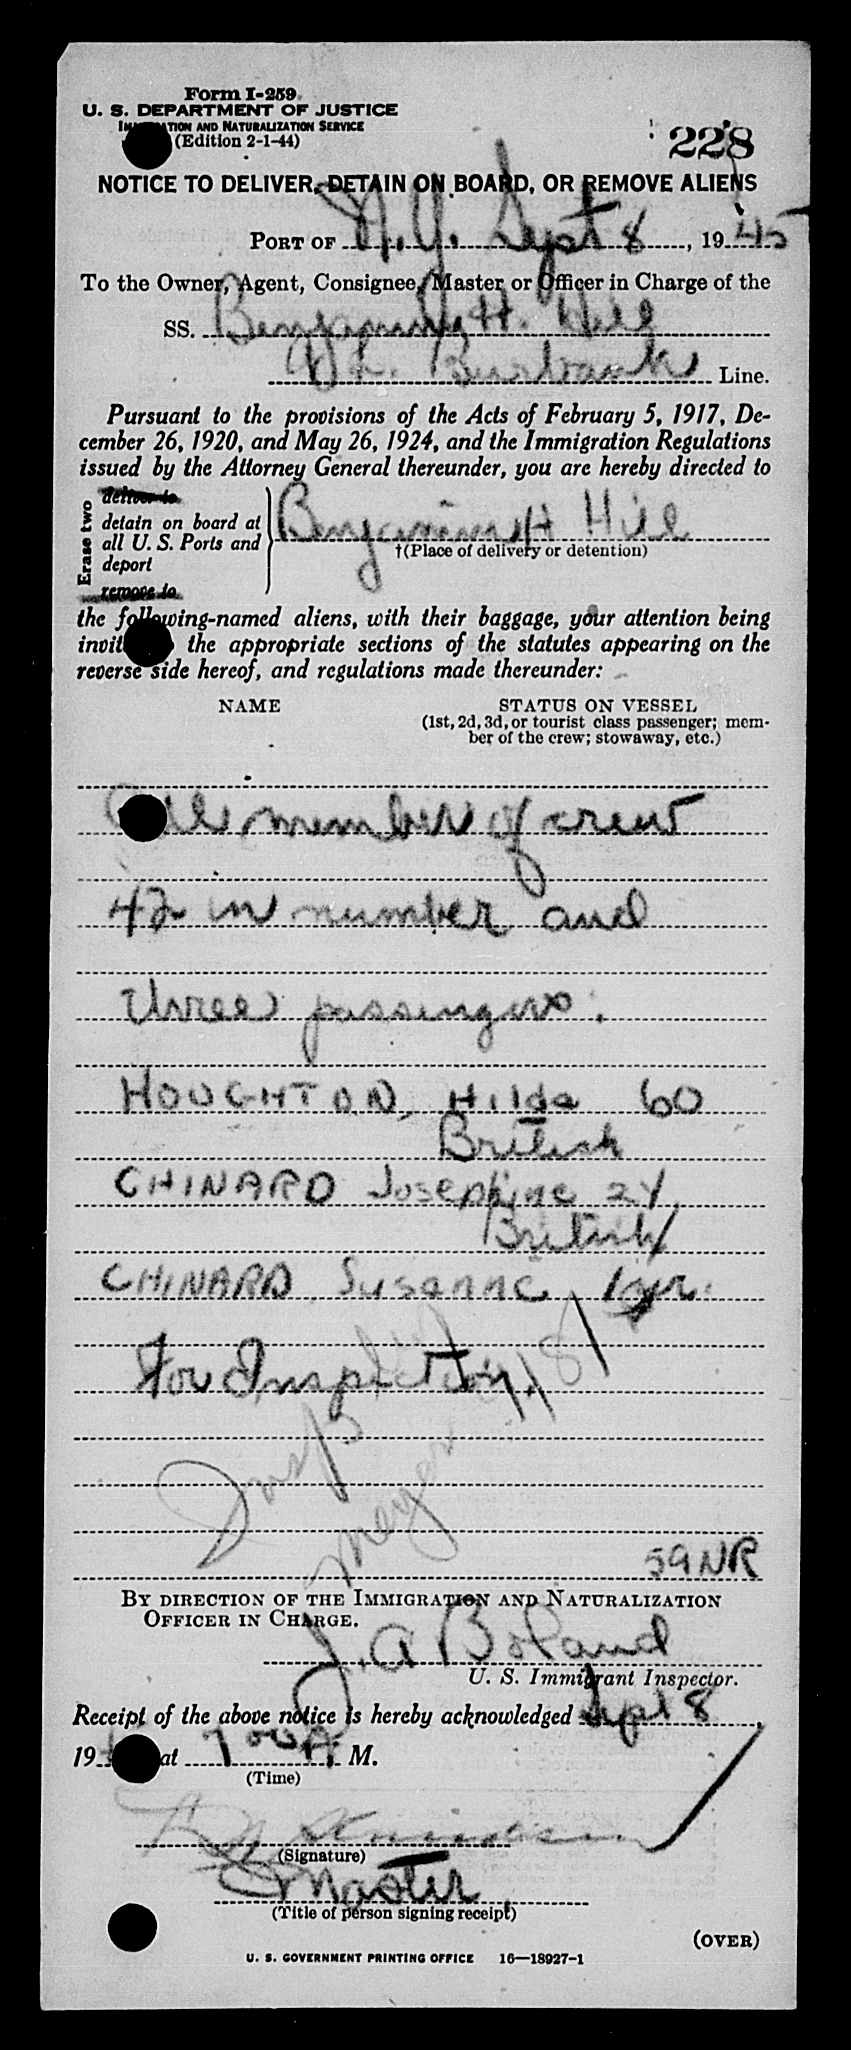 Form I-259
U. S. DEPARTMENT OF JUSTICE
IMMIGRATION AND NATURALIZATION SERVICE
(Edition 2-1-44)
228
NOTICE TO DELIVER, DETAIN ON BOARD, OR REMOVE ALIENS
PORT OF N.Y. Sept 8, 1945
To the Owner, Agent, Consignee, Master or Officer in Charge of the
SS. Benjamin H. Hill
Burbank Line.
Pursuant to the provisions of the Acts of February 5, 1917, De-
cember 26, 1920, and May 26, 1924, and the Immigration Regulations
issued by the Attorney General thereunder, you are hereby directed to
Erase two
deliver to
detain on board at
all U. S. Ports and
deport
remove to
Benjamin H Hill
†(Place of delivery or detention)
the following-named aliens, with their baggage, your attention being
invited to the appropriate sections of the statutes appearing on the
reverse side hereof, and regulations made thereunder:
NAME STATUS ON VESSEL
(1st, 2d, 3d, or tourist class passenger; mem-
ber of the crew; stowaway, etc.)
All member of crew
42 in number and
three passengers:
HOUGHTON, Hilda 60
British
CHINARD Josephine 24
British
CHINARD, Susanne 1 yr.
For Inspection
Insp
Meyer
59NR
BY DIRECTION OF THE IMMIGRATION AND NATURALIZATION
OFFICER IN CHARGE.
J. A Boland
U. S. Immigrant Inspector.
Receipt of the above notice is hereby acknowledged Sept 8,
19 at 7 00 A. M.
(Time)
(Signature)
Master
(Title of person signing receipt)
(OVER)
U. S. GOVERNMENT PRINTING OFFICE 16—18927-1